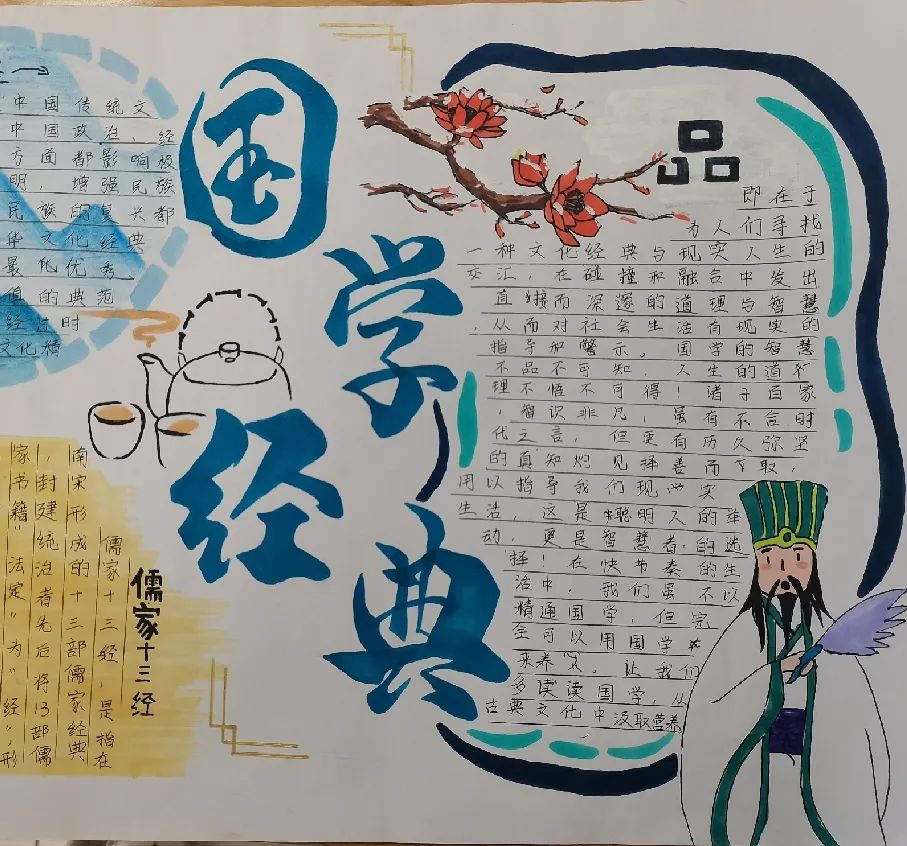 国学经典
中国传统文
中国政治、经
方面都影响极
明，增强民族
民族的复兴都
华文化经典
最优秀、
值的典范
经过时
文化精
品
即在于
为人们寻找
一种文化经典与现实人生的
交汇，在碰撞和融合中发出
直接而深邃的道理与智慧
，从而对社会生活有现实的
指导和警示。国学的智慧
不品不可知，人生的道
理不悟不可得！诸子百家
，智识非凡，虽有不合时
代之言，但更有历久弥坚
的真知灼见择善而取，
用以指导我们现实
生活，这是聪明人的举
动，更是智慧者的选
择！在快节奏的生
活中，我们虽不以
精通国学，但完
全可以用国学
来养，让我们
多读读国学，从
古典文化中汲取营养
儒家十三经
儒家十三经，是指在
南宋形成的十三部儒家经典
，封建统治者先后将13部儒
家书籍“法定”为“经”，形